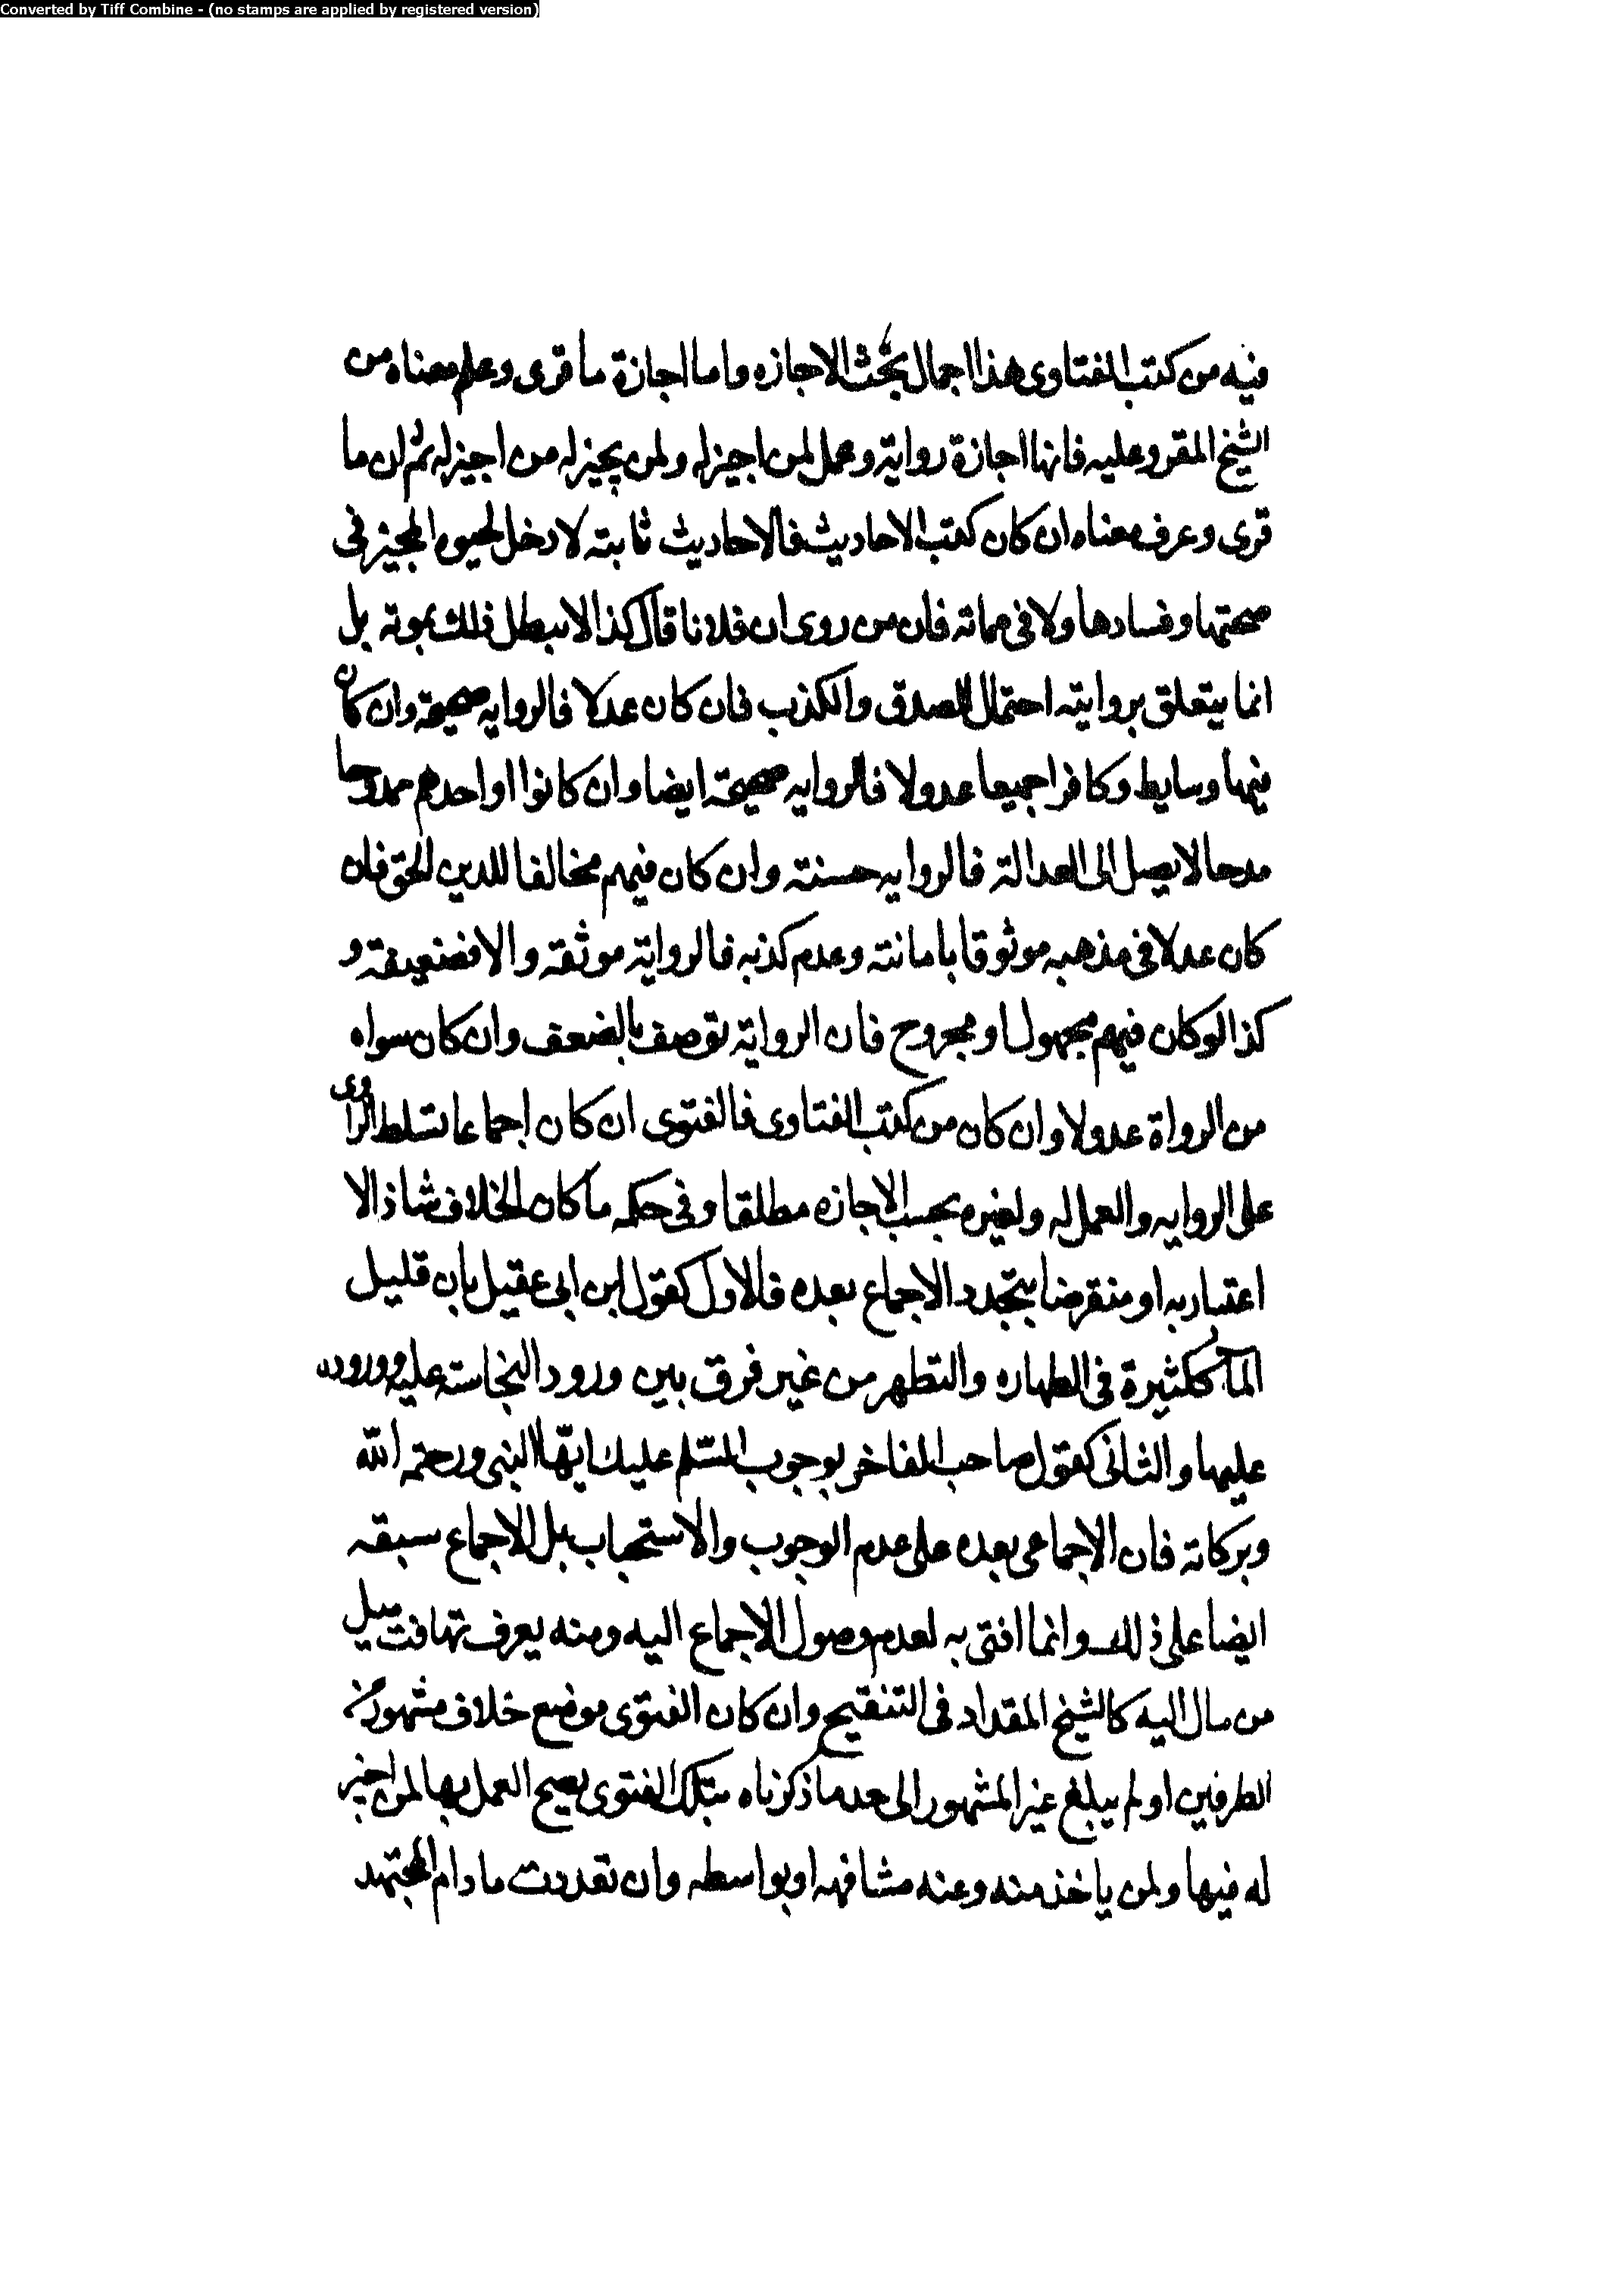 Converted by Tiff Combine - (no stamps are applied by registered version)
فيه من كتب الفتاوى هذا اجمال بحث الاجازه واما اجازة ما قرى وعلم معناه من
الشيخ المقرو عليه فانها اجازة رواية وعمل لمن اجيز له ولمن يجيز له من اجيز له ثم ان ما
قرى وعرف معناه ان كان كتب الاحاديث فالاحاديث ثابته لا دخل لحيوه المجيز فى
صحتها وفسادها ولا فى مماته فان من روى ان فلانا قال كذا لا يبطل ذلك بموته بل
انما يتعلق بروايته احتمال الصدق والكذب فان كان عدلا فالروايه صحيحة وان كان
فيها وسايط وكانوا جميعا عدولا فالروايه صحيحة ايضا وان كانوا او احدهم ممدوحا
مدحا لا يصل الى العدالة فالروايه حسنته وان كان فيهم مخالفا للدين الحق فان
كان عدلا فى مذهبه موثوقا بامانته وعدم كذبه فالرواية موثقة والا فضعيفة و
كذا لو كان فيهم مجهول او مجروح فان الرواية توصف بالضعف وان كان سواه
من الرواة عدولا وان كان من كتب الفتاوى فالفتوى ان كان اجماعا تسلط الراوى
على الروايه والعمل له ولغيره بحسب الاجازه مطلقا وفى حكمه ما كان الخلاف شاذا لا
اعتبار به او منقرضا بتجدد الاجماع بعده فالاول كقول ابن ابى عقيل بان قليل
المآ ككثيرة فى الطهاره والتطهر من غير فرق بين ورود النجاسته عليه ووروده
عليها والثانى كقول صاحب الفاخر بوجوب السّلم عليك ايّها النبى ورحمته الله
وبركاته فان الاجماعى بعده على عدم الوجوب والاستحباب بل الاجماع سبقه
ايضا على ذلك وانما افتى به لعدم وصول الاجماع اليه ومنه يعرف تهافت ميل
من مال اليه كالشيخ المقداد فى التنقيح وان كان الفتوى موضع خلاف مشهور من
الطرفين او لم يبلغ غير المشهور الى حد ما ذكرناه فتلك الفتوى يصح العمل بها لمن اجيز
له فيها ولمن ياخذ منه وعنه مشافهه او بواسطه وان تعددت ما دام المجتهد